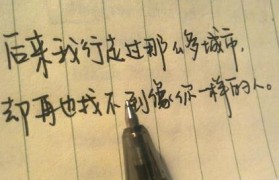 后来我行走过那么多城市，
却再也找不到像你一样的人。